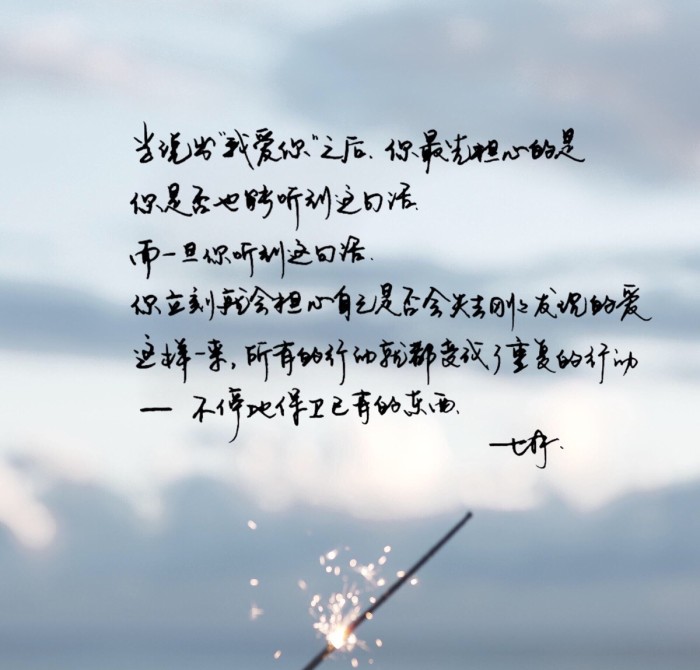 当说出“我爱你”之后、你最先担心的是
你是否也能听到这句话.
而一旦你听到这句话.
你立刻就会担心自己是否会失去刚刚发现的爱
这样一来，所有的行动就都变成了重复的行动
— 不停地保卫已有的东西.